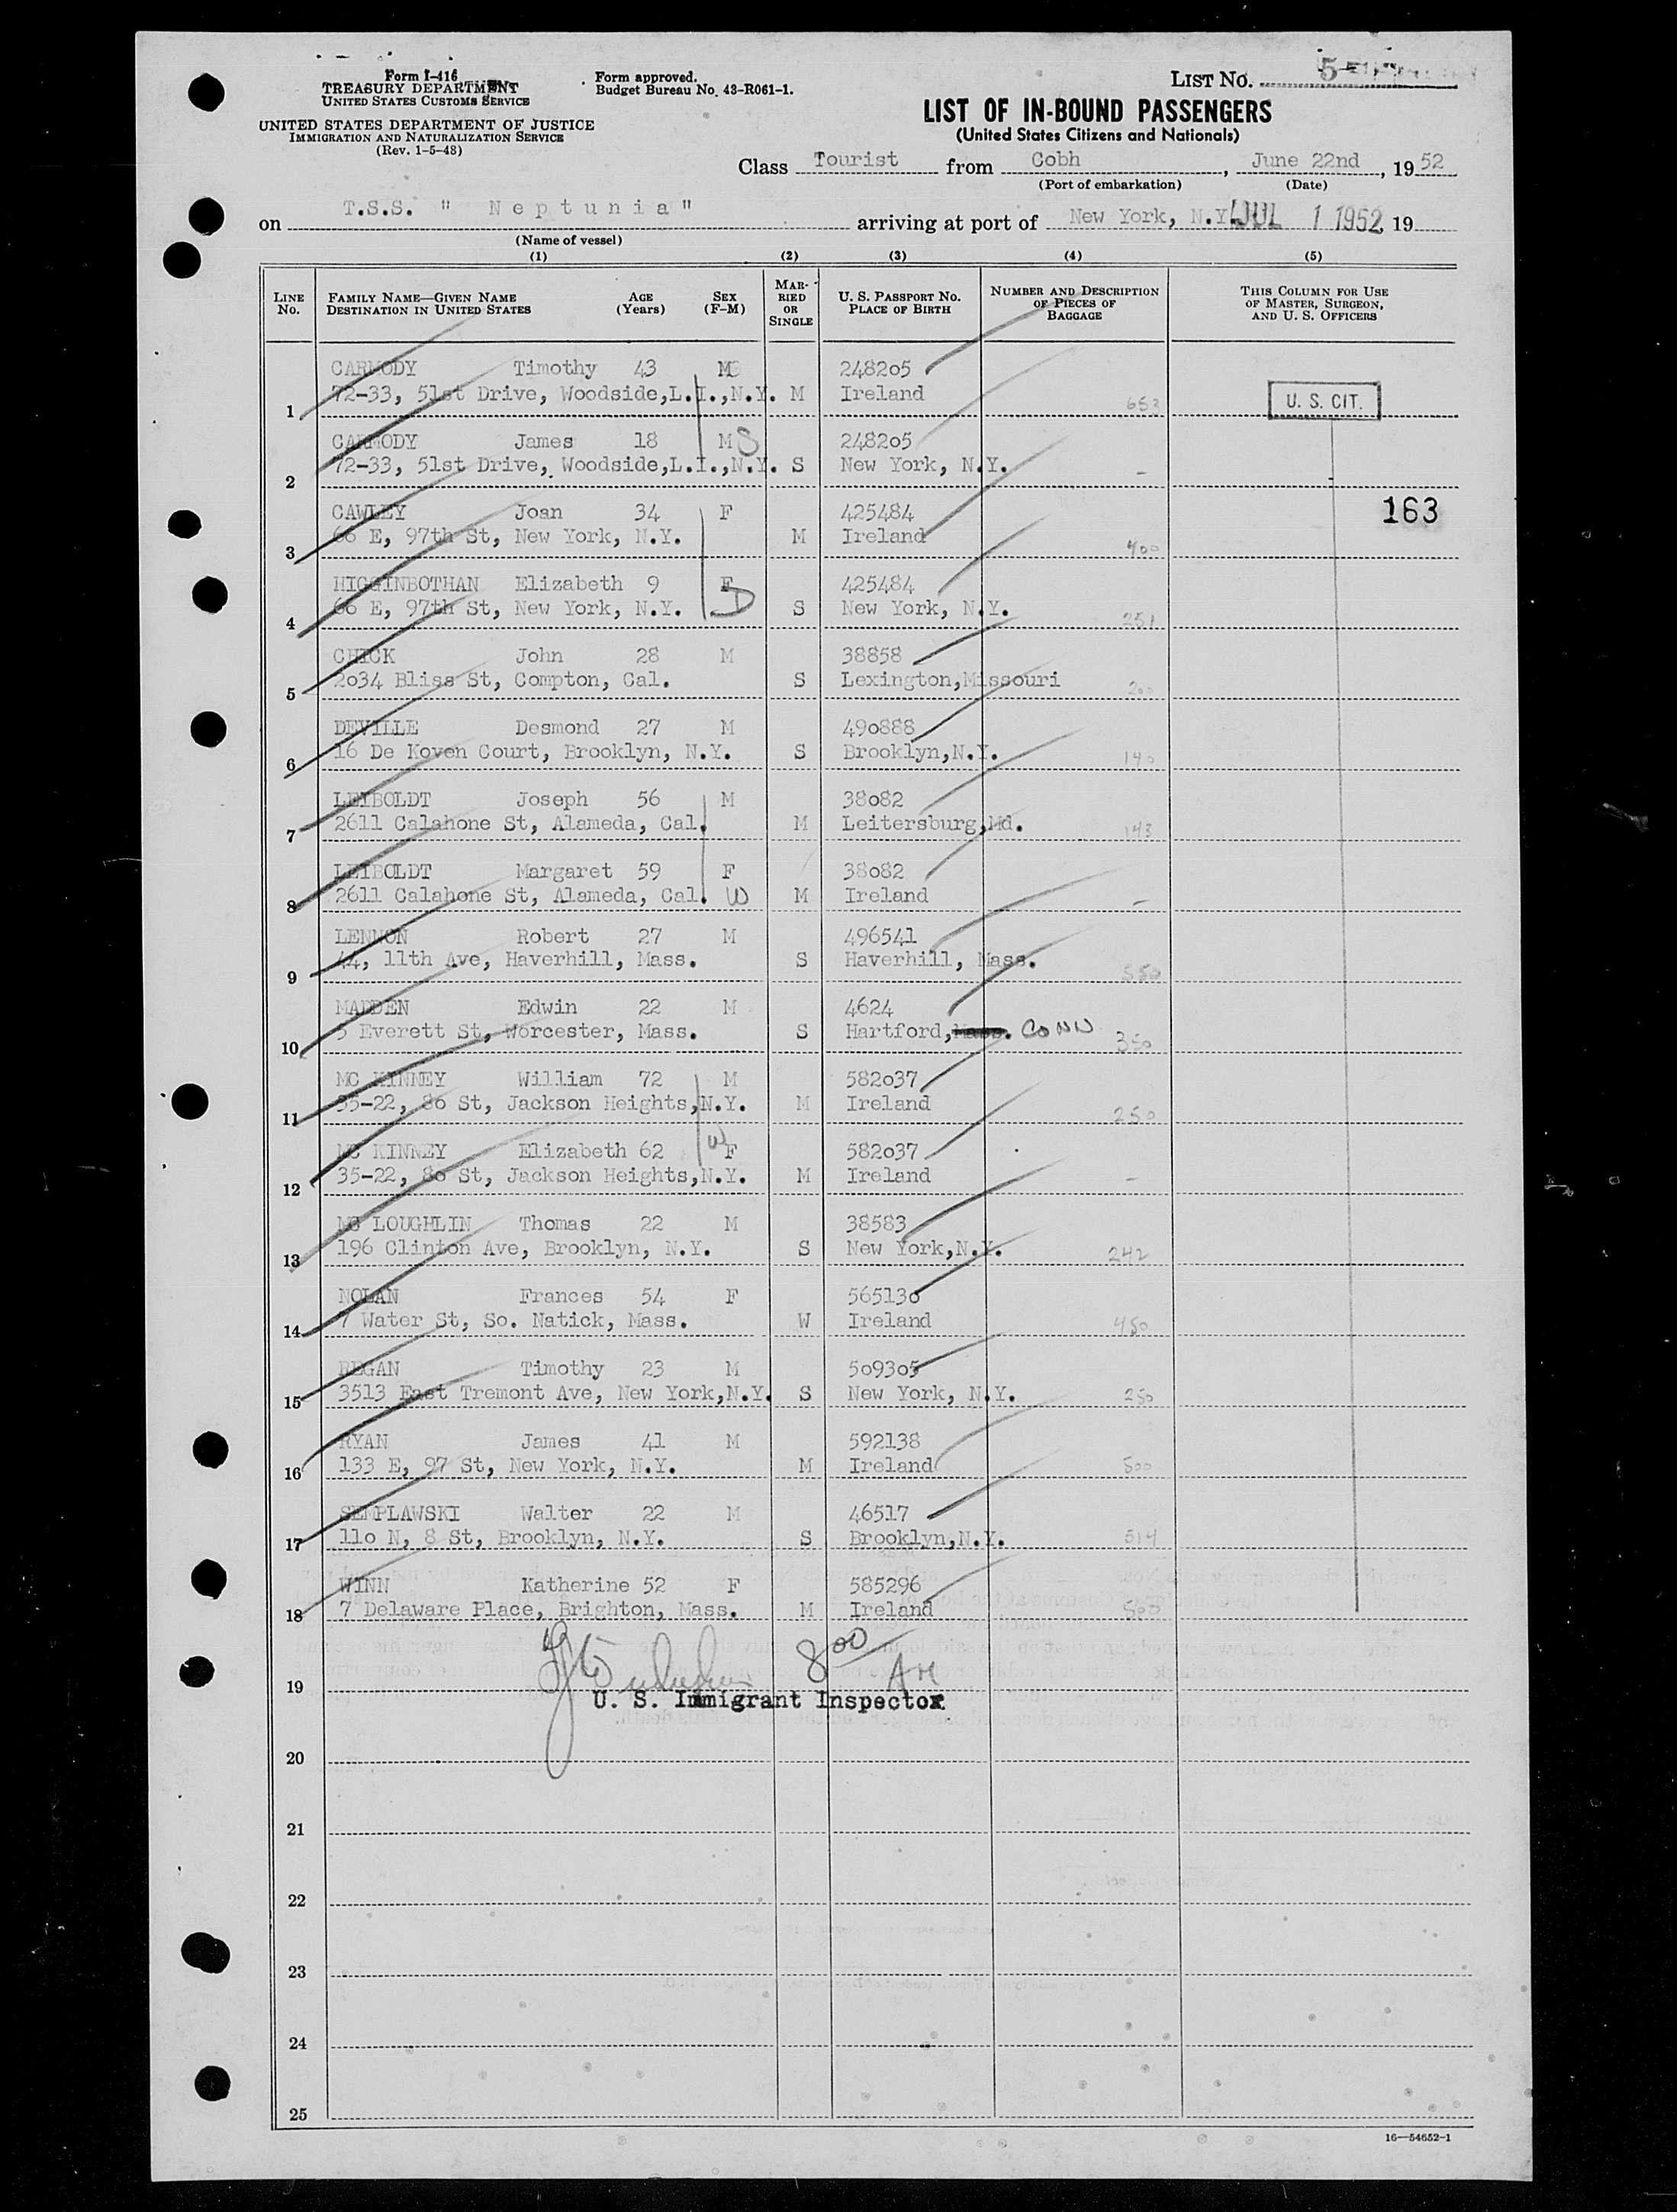 Form I-416
TREASURY DEPARTMENT
UNITED STATES CUSTOMS SERVICE
UNITED STATES DEPARTMENT OF JUSTICE
IMMIGRATION AND NATURALIZATION SERVICE
(Rev. 1-5-48)
Form approved.
Budget Bureau No. 43-R061-1.
LIST NO. 5
LIST OF IN-BOUND PASSENGERS
(United States Citizens and Nationals)
Class Tourist from Cobh, June 22nd, 1952
(Port of embarkation) (Date)
on T.S.S. " Neptunia" arriving at port of New York, N.Y. JUL 1 1952, 19
(Name of vessel)
(1) (2) (3) (4) (5)
LINE No. FAMILY NAME—GIVEN NAME DESTINATION IN UNITED STATES AGE (Years) SEX (F-M) MARRIED OR SINGLE U. S. PASSPORT NO. PLACE OF BIRTH NUMBER AND DESCRIPTION OF PIECES OF BAGGAGE THIS COLUMN FOR USE OF MASTER, SURGEON, AND U. S. OFFICERS
CARMODY Timothy 43 M 248205
1 72-33, 51st Drive, Woodside,L.I.,N.Y. M Ireland 653 U. S. CIT.
CARMODY James 18 M S 248205
2 72-33, 51st Drive, Woodside,L.I.,N.Y. S New York, N.Y. -
CAWLEY Joan 34 F 425484 163
3 66 E, 97th St, New York, N.Y. M Ireland 400
HIGGINBOTHAN Elizabeth 9 F D 425484
4 66 E, 97th St, New York, N.Y. S New York, N.Y. 251
CHICK John 28 M 38858
5 2034 Bliss St, Compton, Cal. S Lexington,Missouri 200
DEVILLE Desmond 27 M 490888
6 16 De Koven Court, Brooklyn, N.Y. S Brooklyn,N.Y. 140
LEIBOLDT Joseph 56 M 38082
7 2611 Calahone St, Alameda, Cal. M Leitersburg,Md. 143
LEIBOLDT Margaret 59 F 38082
8 2611 Calahone St, Alameda, Cal. W M Ireland -
LENNON Robert 27 M 496541
9 44, 11th Ave, Haverhill, Mass. S Haverhill, Mass. 350
MADDEN Edwin 22 M 4624
10 5 Everett St, Worcester, Mass. S Hartford, Mass. CONN 350
MC KINNEY William 72 M 582037
11 35-22, 80 St, Jackson Heights,N.Y. M Ireland 250
MC KINNEY Elizabeth 62 W F 582037
12 35-22, 80 St, Jackson Heights,N.Y. M Ireland -
MC LOUGHLIN Thomas 22 M 38583
13 196 Clinton Ave, Brooklyn, N.Y. S New York,N.Y. 242
NOLAN Frances 54 F 565130
14 7 Water St, So. Natick, Mass. W Ireland 450
REGAN Timothy 23 M 509305
15 3513 East Tremont Ave, New York,N.Y. S New York, N.Y. 250
RYAN James 41 M 592138
16 133 E, 97 St, New York, N.Y. M Ireland 500
SEMPLAWSKI Walter 22 M 46517
17 110 N, 8 St, Brooklyn, N.Y. S Brooklyn,N.Y. 514
WINN Katherine 52 F 585296
18 7 Delaware Place, Brighton, Mass. M Ireland 500
800
19
U. S. Immigrant Inspector
20
21
22
23
24
25
16—54652-1